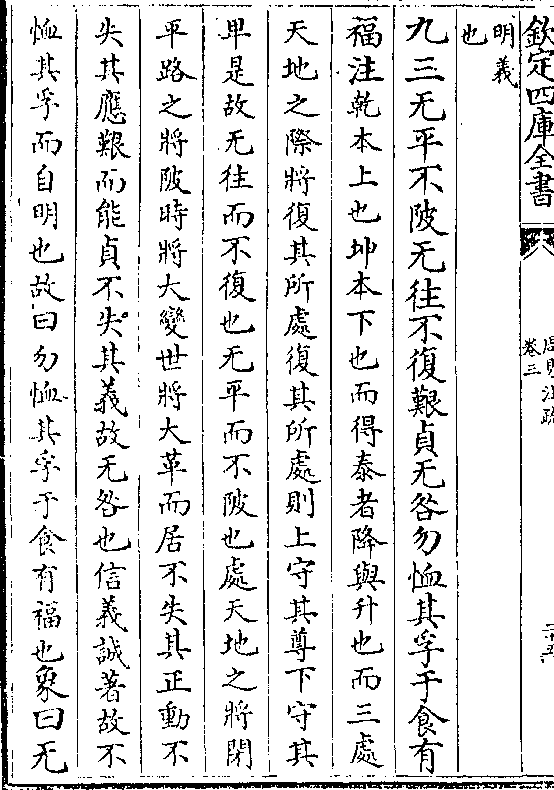 欽定四庫全書
卷三
明義
也
九三无平不陂无往不復艱貞无咎勿恤其孚于食有
福注乾本上也坤本下也而得泰者降與升也而三處
天地之際將復其所處復其所處則上守其尊下守其
卑是故无往而不復也无平而不陂也處天地之將閉
平路之將陂時將大變世將大革而居不失其正動不
失其應艱而能貞不失其義故无咎也信義誠著故不
恤其孚而自明也故曰勿恤其孚于食有福也象曰无